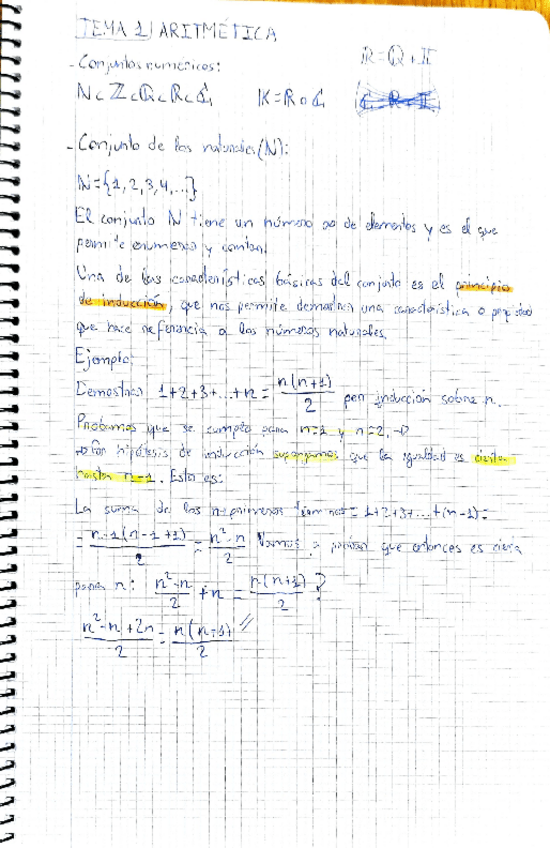 TEMA 1) ARITMÉTICA
R = Q + II
- Conjuntos numéricos:
N ⊂ Z ⊂ Q ⊂ R ⊂ C
K = R o C
- Conjunto de los naturales (N):
N = {1, 2, 3, 4, ...}
El conjunto N tiene un número ∞ de elementos y es el que
permite enumerar y contar.
Una de las características básicas del conjunto es el principio
de inducción, que nos permite demostrar una característica o propiedad
que hace referencia a los números naturales.
Ejemplo:
Demostrar 1+2+3+...+n = n(n+1)/2 por inducción sobre n.
Probamos que se cumple para n=1 y n=2. →
→ Por hipótesis de inducción supongamos que la igualdad es cierta
hasta n-1. Esto es:
La suma de los primeros = 1+2+3+...+(n-1) =
= n-1(n-1+1)/2 = n²-n/2 Vamos a probar que entonces es cierta
para n: n²-n/2 + n = n(n+1)/2 ?
n²-n+2n/2 = n(n+1)/2 //